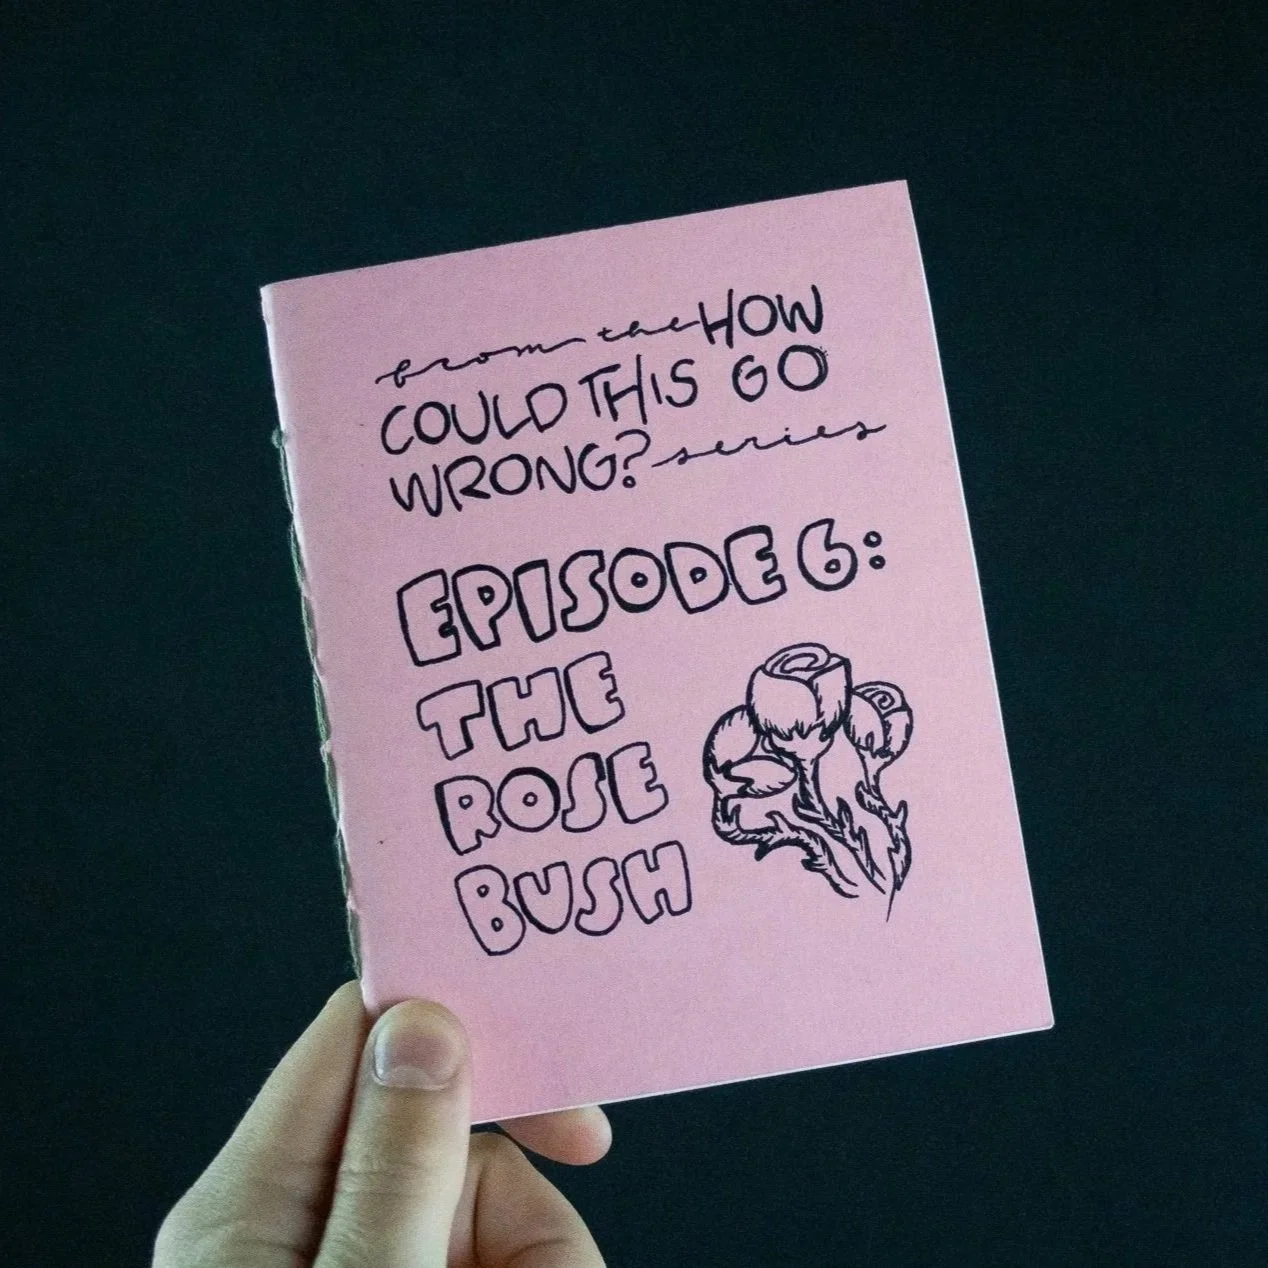 from the HOW
COULD THIS GO
WRONG? series
EPISODE 6:
THE
ROSE
BUSH